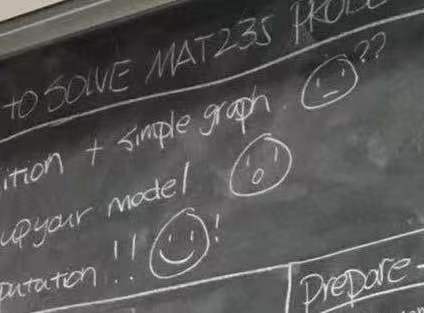 to SOLVE MAT235 PROB
ition + simple graph. ??
up your model
putation !! !
Prepare-